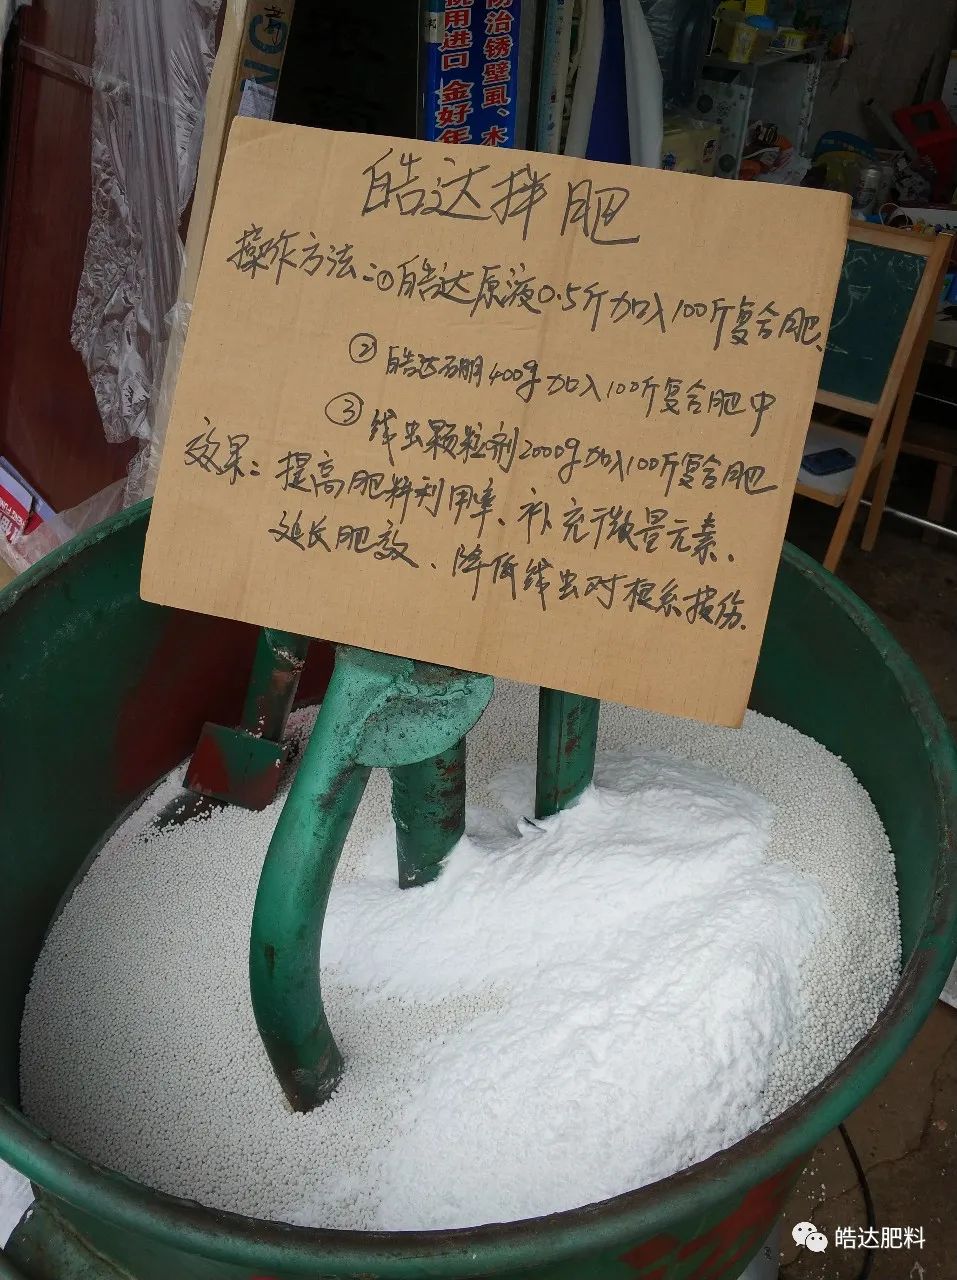 防治锈壁虱、木
抚用进口 金好年
NG
皓达拌肥
操作方法：①皓达原液0.5斤加入100斤复合肥、
②皓达硼400g加入100斤复合肥中
③线虫颗粒剂2000g加入100斤复合肥
效果：提高肥料利用率、补充微量元素、
延长肥效、降低线虫对根系损伤.
皓达肥料